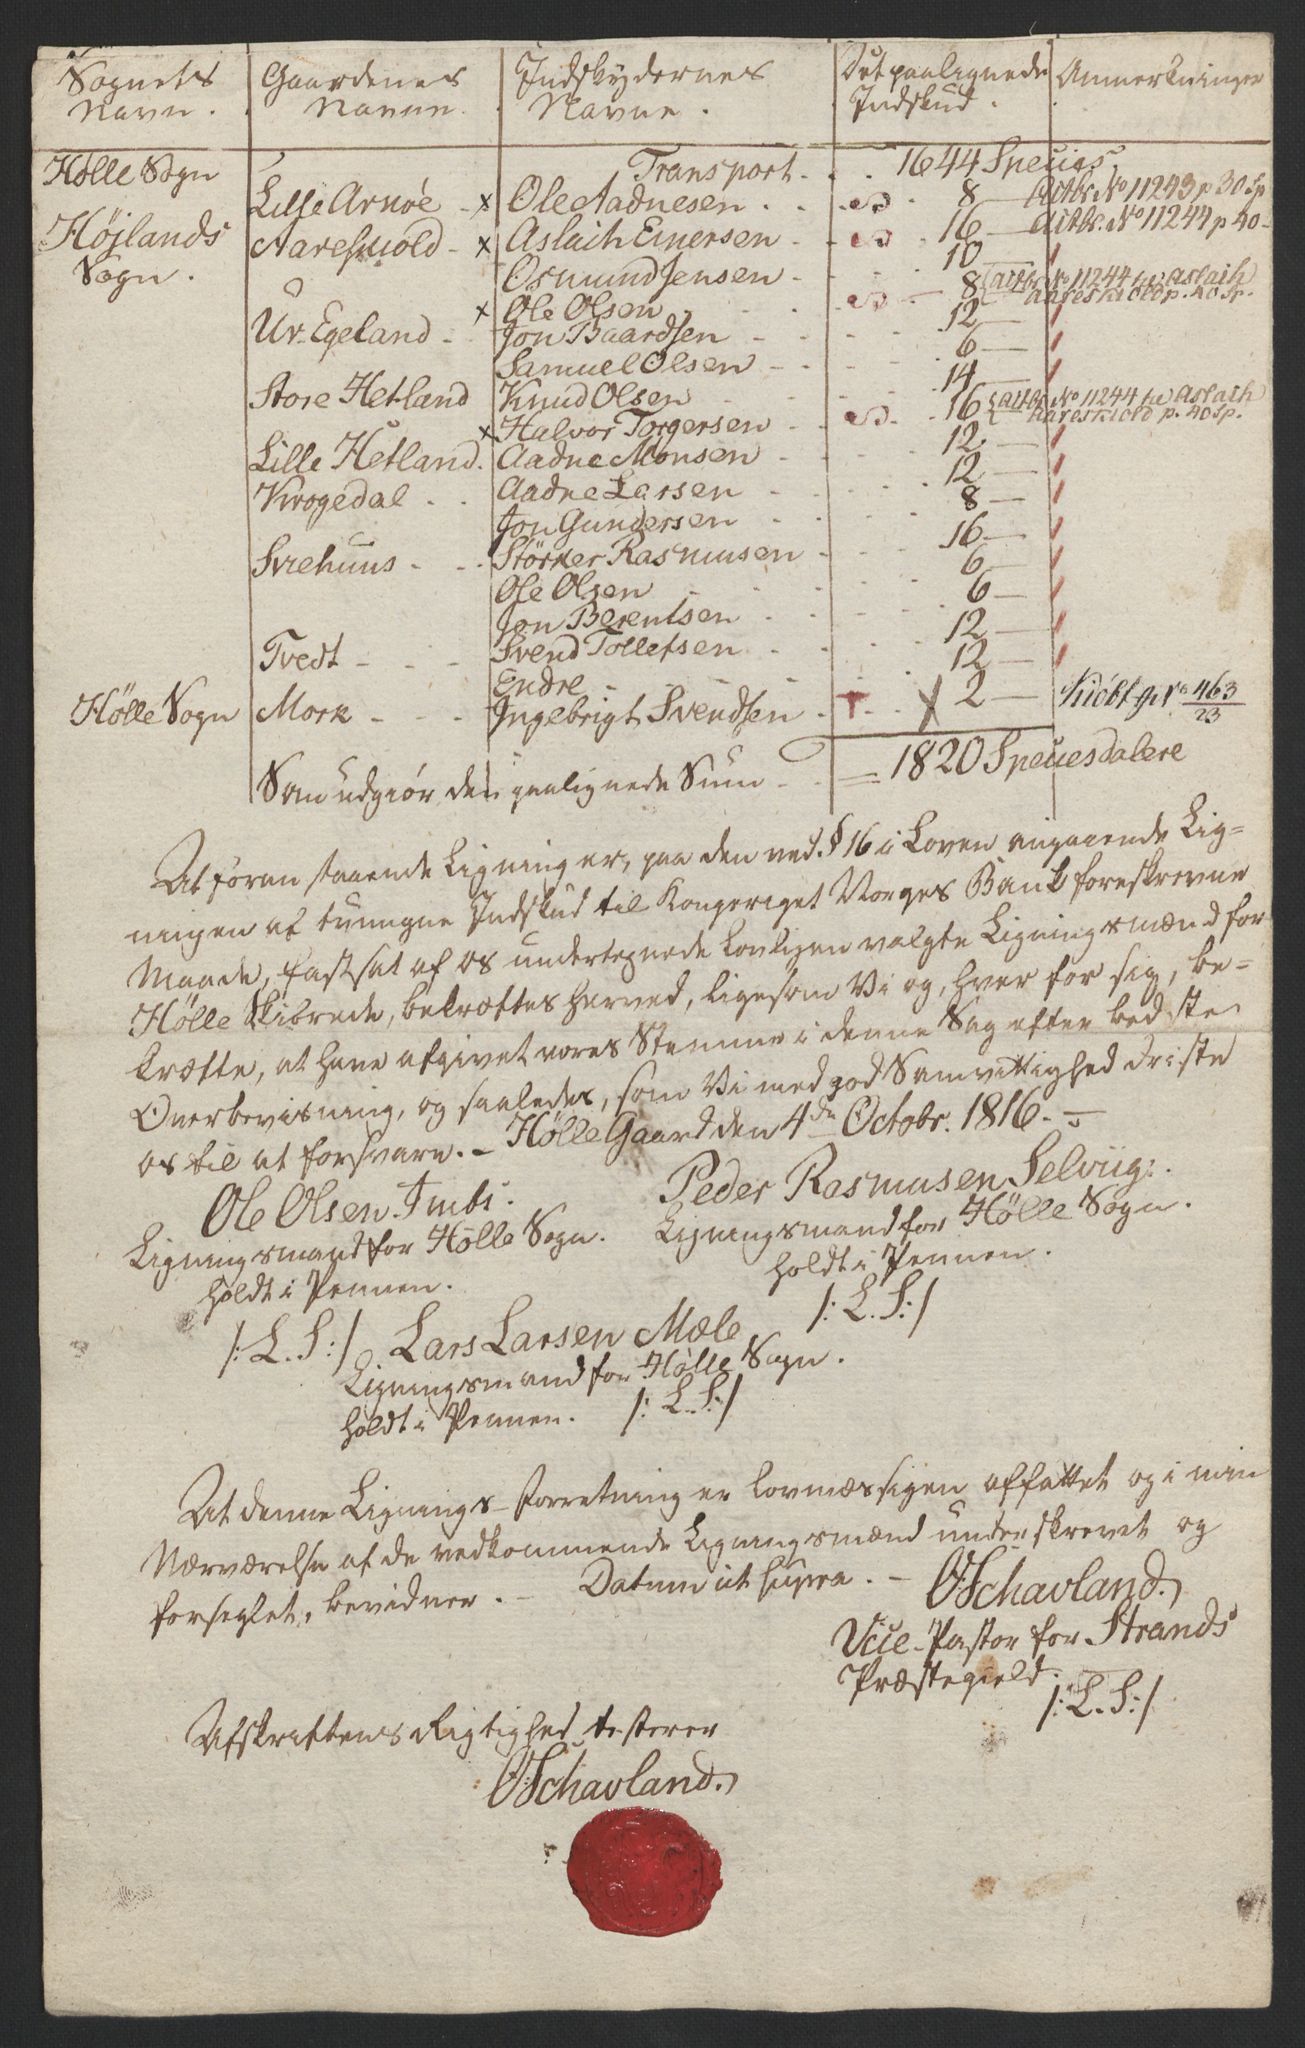 Sognets Navn. Gaardenes Navne. Indskydernes Navne. Det paalignede Indskud. Anmerkninger
Hölle Sogn Transport - . . 1644 Species.
Lille Arnöe - x Ole Aadnesen . . . 8 - Actbr. No 11243 p 30 Sp
Höjlands Sogn. Aareskiold - x Aslach Einersen - 16 - Actbr. No 11244 p 40 -
Osmund Jensen - 10 -
x Ole Olsen - 8 Actbr No 11244 he Aslach Aareskiold p. 40 Sp.
Ur. Egeland - Jon Baardsen - 12 -
Samuel Olsen - 6 -
Store Hetland Knud Olsen - 14 -
x Halvor Torgersen - 16 Actbr No 11244 he Aslach Aareskiold p. 40 Sp.
Lille Hetland. Aadne Monsen - 12 -
Krogedal - . Aadne Larsen - 12 -
Jon Gundersen - 8 -
Sviehuus - . Störker Rasmusen - 16 -
Ole Olsen 6 -
Jon Berentsen - 6 -
Tvedt - - - Svend Tolletsen - 12 -
Endre - 12 -
Hölle Sogn Mork - - - Ingebrigt Svendsen . 2 - 463/23
Som udgiör den paalignede Sum - . = 1820 Speciesdalere
At foranstaaende Ligning er, paa den ved § 16 i Loven angaaende Lig=
ningen af tvungne Indskud til Kongeriget Norges Bank foreskrevne
Maade, fastsat af os undertegnede lovligen valgte Ligningsmænd for
Hölle Skibrede, bekræftes herved, ligesom Vi og, hver for sig, be=
kræfte, at have afgivet vores Stemme i denne Sag efter bedste
Overbeviisning, og saaledes, som Vi med god Samvittighed driste
os til at forsvare. - Hölle Gaard den 4de Octobr. 1816. -
Ole Olsen Imbs. Peder Rasmusen Selviig.
Ligningsmand for Hölle Sogn. Ligningsmand for Hölle Sogn.
holdt i Pennen. holdt i Pennen.
/: L. S:/ Lars Larsen Mæle /: L. S:/
Ligningsmand for Hölle Sogn.
holdt i Pennen. /: L. S:/
At denne Lignings-Forretning er lovmæssigen affattet og i min
Nærværelse af de vedkommende Ligningsmænd underskrevet og
forseglet, bevidner. - Datum ut supra. - O Schavland.
Vice-Pastor for Strands
Præstegield.
/: L. S:/
Afskriftens Rigtighed testerer
O Schavland.